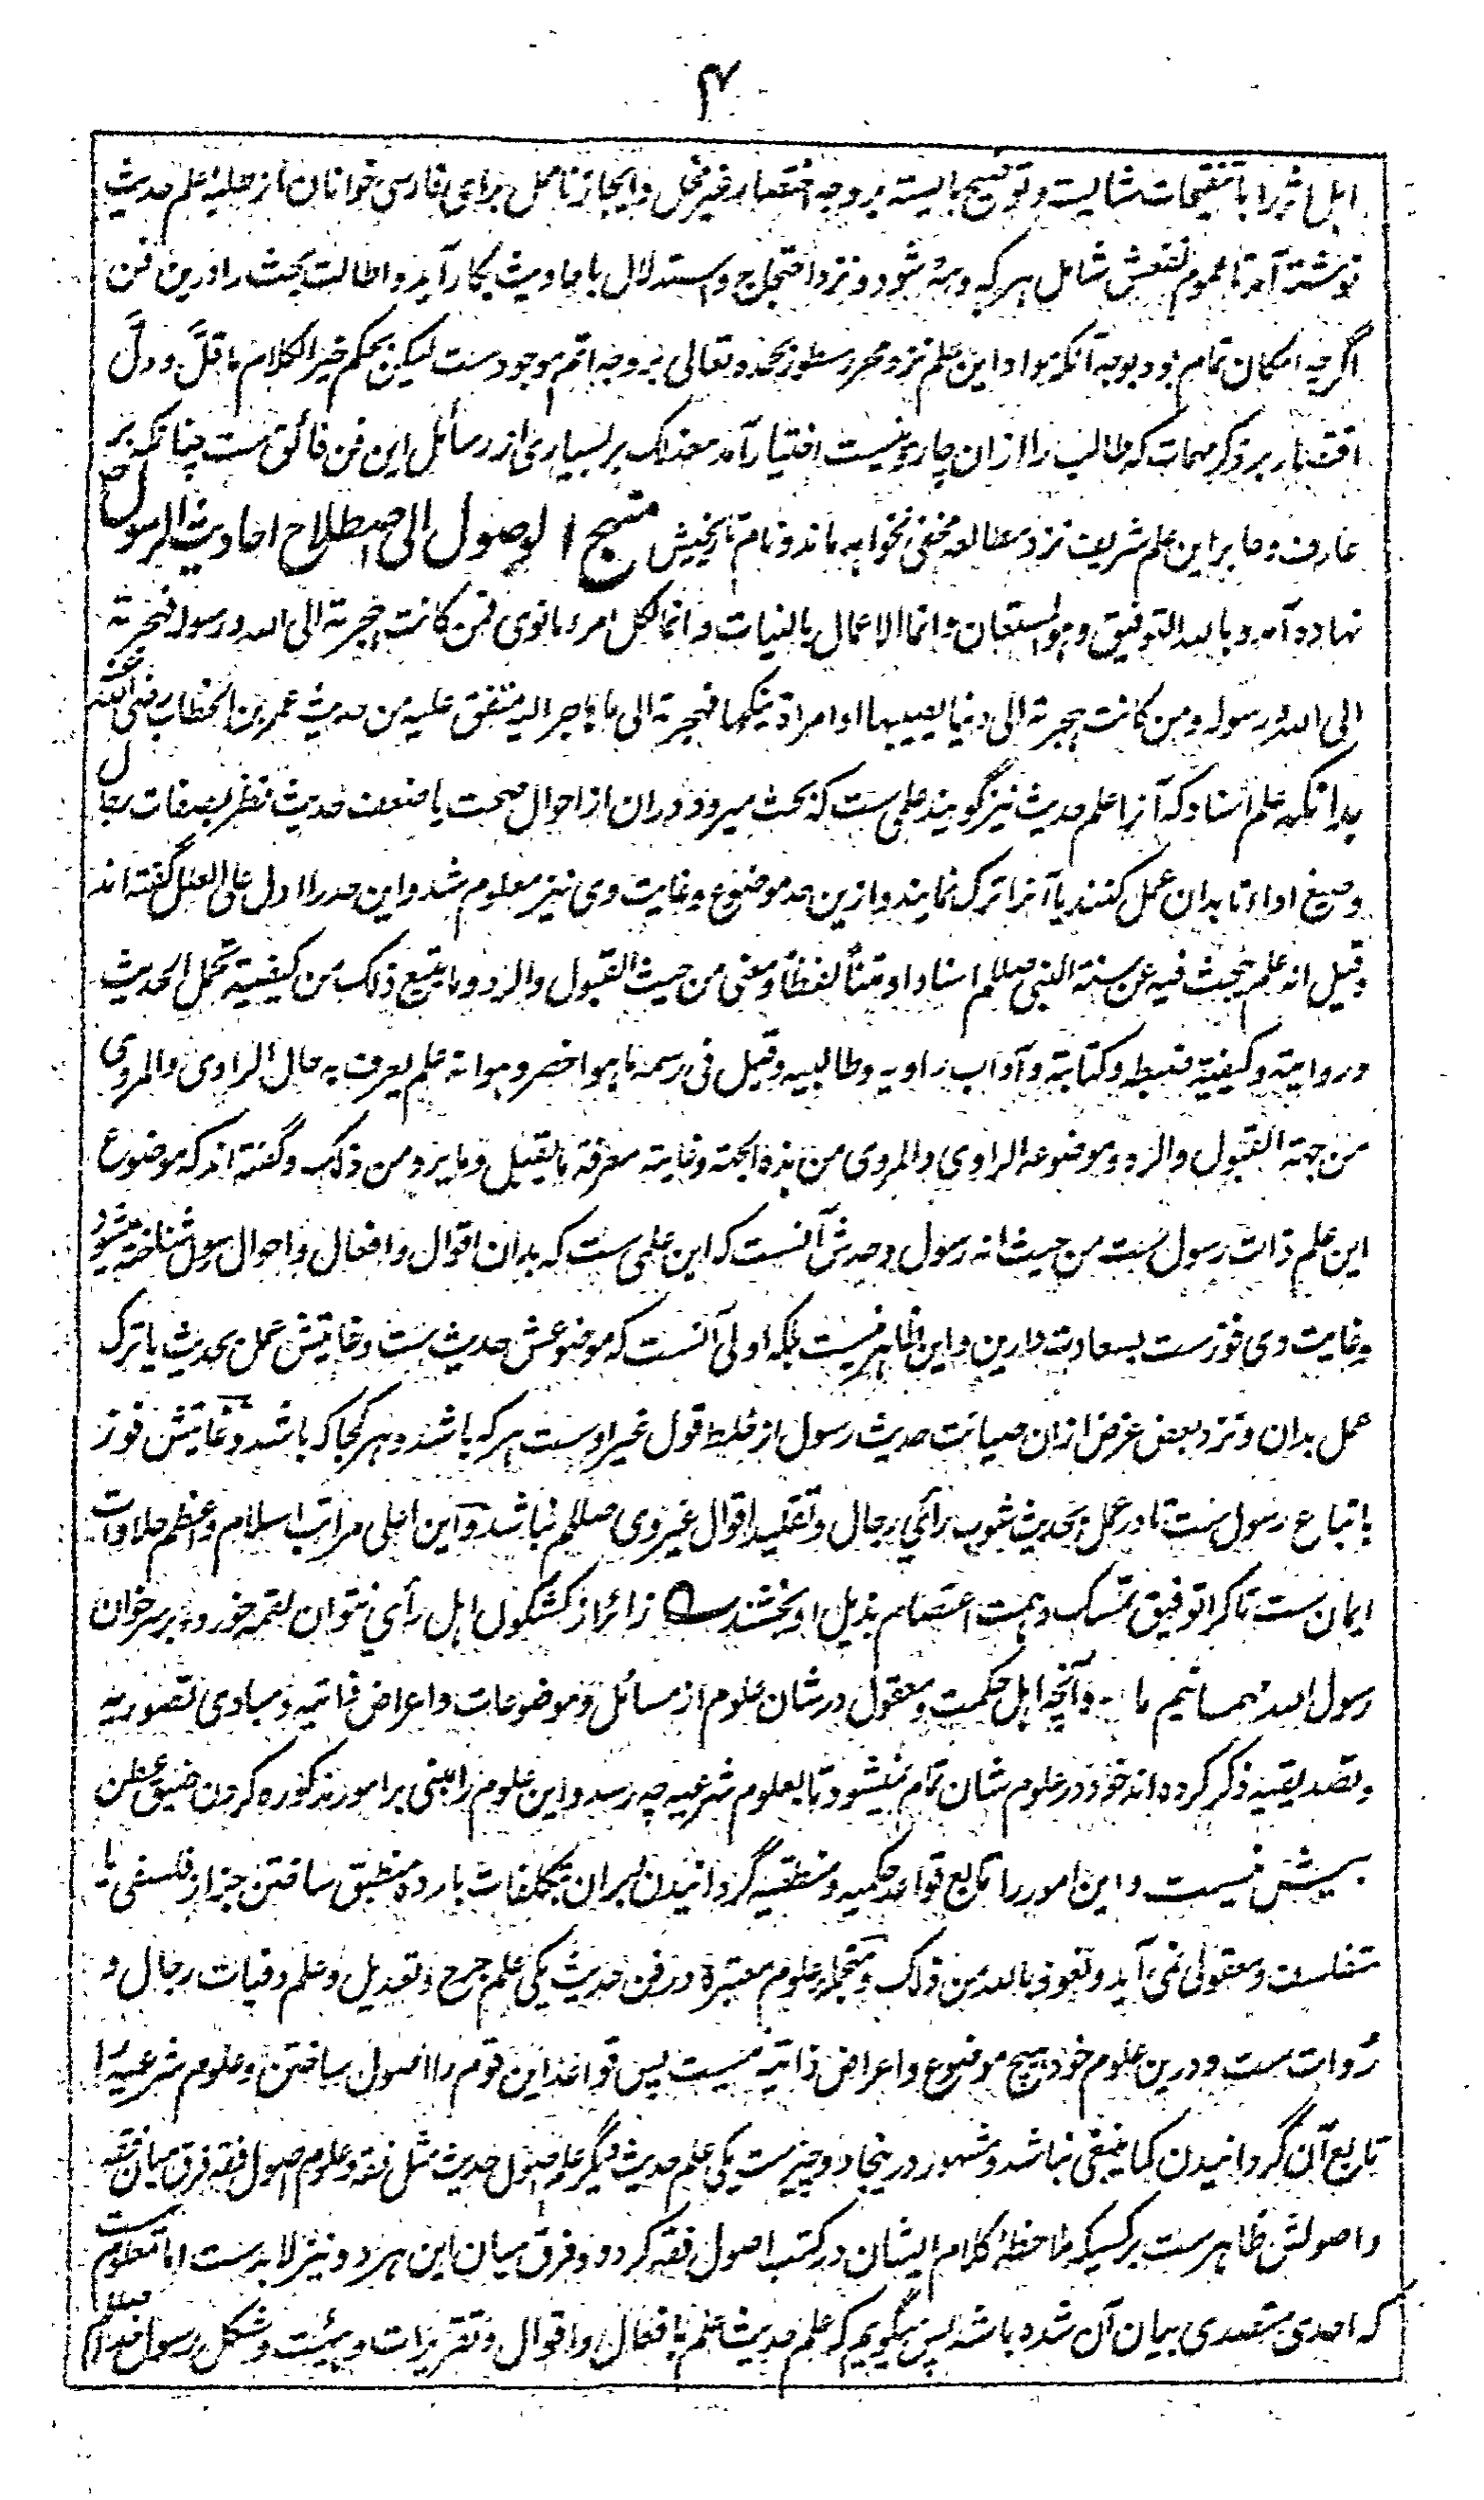 ۴
اہل اثر را با تنقیحات شایسته و توضیح بایسته بر وجه اختصار غیر مخل و ایجاز نا ممل برای فارسی خوانان از طلبۂ علم حدیث
نوشته آمد تا عموم نفعش شامل ہر کہ و مہ شود و نزد احتجاج و استدلال باحادیث بکار آید و اطالت بحث را درین فن
اگرچہ امکان تمام بود بوجہ آنکہ مواد این علم نزد محرر سطور بحمدہ تعالی بر وجہ اتم موجودست لیکن بحکم خیر الکلام ما قلَّ و دلَّ
اقتصار بر ذکر مہمات کہ طالب را ازان چارہ نیست اختیار آمد معذلک بر بسیاری از رسائل این فن فائق ست چنانکہ بر
عارف و ماہر این علم شریف نزد مطالعہ مخفی نخواہد ماند و نام تاریخیش منہج الوصول الی اصطلاح احادیث الرسول
نہادہ آمد و باللہ التوفیق و ہو المستعان و انما الاعمال بالنیات و انما لکل امرء ما نوی فمن کانت ہجرتہ الی اللہ و رسولہ فہجرتہ
الی اللہ و رسولہ و من کانت ہجرتہ الی دنیا یصیبہا او امراة ینکحہا فہجرتہ الی ما ہاجر الیہ متفق علیہ من حدیث عمر بن الخطاب رضی اللہ عنہ
بدانکہ علم اسناد کہ آنرا علم حدیث نیز گویند علمی ست کہ بحث میرود دران از احوال صحت یا ضعف حدیث نظر بصفات رجال
و صیغ ادا تا بدان عمل کنند یا آنرا ترک نمایند و ازین حد موضوع و غایت وی نیز معلوم شد و این حد را ادل علی العمل گفته اند
و قیل انہ علم یبحث فیہ عن سنة النبی صللم اسنادا و متناً لفظاً و معنی من حیث القبول و الرد و ما یتبع ذلک من کیفیة تحمل الحدیث
و روایتہ و کیفیة ضبطہ و کتابتہ و آداب راویہ و طالبیہ و قیل فی رسمہ ما ہو اخصر و ہو انہ علم یعرف بہ حال الراوی و المروی
من جہة القبول و الرد و موضوعہ الراوی و المروی من ہذہ الجہة و غایتہ معرفة ما یقبل و ما یرد من ذلک و گفته اند کہ موضوع
این علم ذات رسول ست من حیث انہ رسول و حدش آنست کہ این علمی ست کہ بدان اقوال و افعال و احوال رسول شناختہ میشود
و غایت وی فوزست بسعادت دارین و این ظاہر نیست بلکہ اولی آنست کہ موضوعش حدیث ست و غایتش عمل بحدیث یا ترک
عمل بدان و نزد بعض غرض ازان صیانت حدیث رسول از خلط قول غیر اوست ہر کہ باشد و ہر کجا کہ باشد و غایتش فوز
باتباع رسول ست تا در عمل بحدیث شوب رأی رجال و تقلید اقوال غیر وی صللم نباشد و این اعلی مراتب اسلام و اعظم حلاوات
ایمان ست تا کرا توفیق تمسک و ہمت اعتصام بذیل او بخشند زائر از کشکول اہل رأی نتوان لقمہ خورد بر سر خوان
رسول اللہ مہمانیم ما و آنچہ اہل حکمت و معقول در شان علوم از مسائل و موضوعات و اعراض ذاتیہ و مبادی تصوریہ
و تصدیقیہ ذکر کردہ اند خود در علوم شان تمام نمیشود تا بعلوم شرعیہ چہ رسد و این علوم را مبنی بر امور مذکورہ کردن ضیق عطن
بیش نیست و این امور را تابع قواعد حکمیہ و منطقیہ گردانیدن و بران بتکلفات باردہ منطبق ساختن جز از فلسفی یا
متفلسف و معقولی نمی آید و نعوذ باللہ من ذلک و منجملہ علوم معتبرہ در فن حدیث یکی علم جرح و تعدیل و علم وفیات رجال و
رُوات ست و درین علوم خود ہیچ موضوع و اعراض ذاتیہ نیست پس قواعد این قوم را اصول ساختن و علوم شرعیہ را
تابع آن گردانیدن کما ینبغی نباشد و مشہور درینجا دو چیزست یکی علم حدیث دیگر علم اصول حدیث مثل فقہ و علوم اصول فقہ فرق میان فقہ
و اصولش ظاہرست بر کسیکہ ملاحظۂ کلام ایشان در کتب اصول فقہ کردہ و فرق میان این ہر دو نیز لا بدست اما معلوم نیست
کہ احدی متصدی بیان آن شدہ باشد پس میگویم کہ علم حدیث علم بافعال و اقوال و تقریرات و ہیئت و شکل رسول خدا صللم